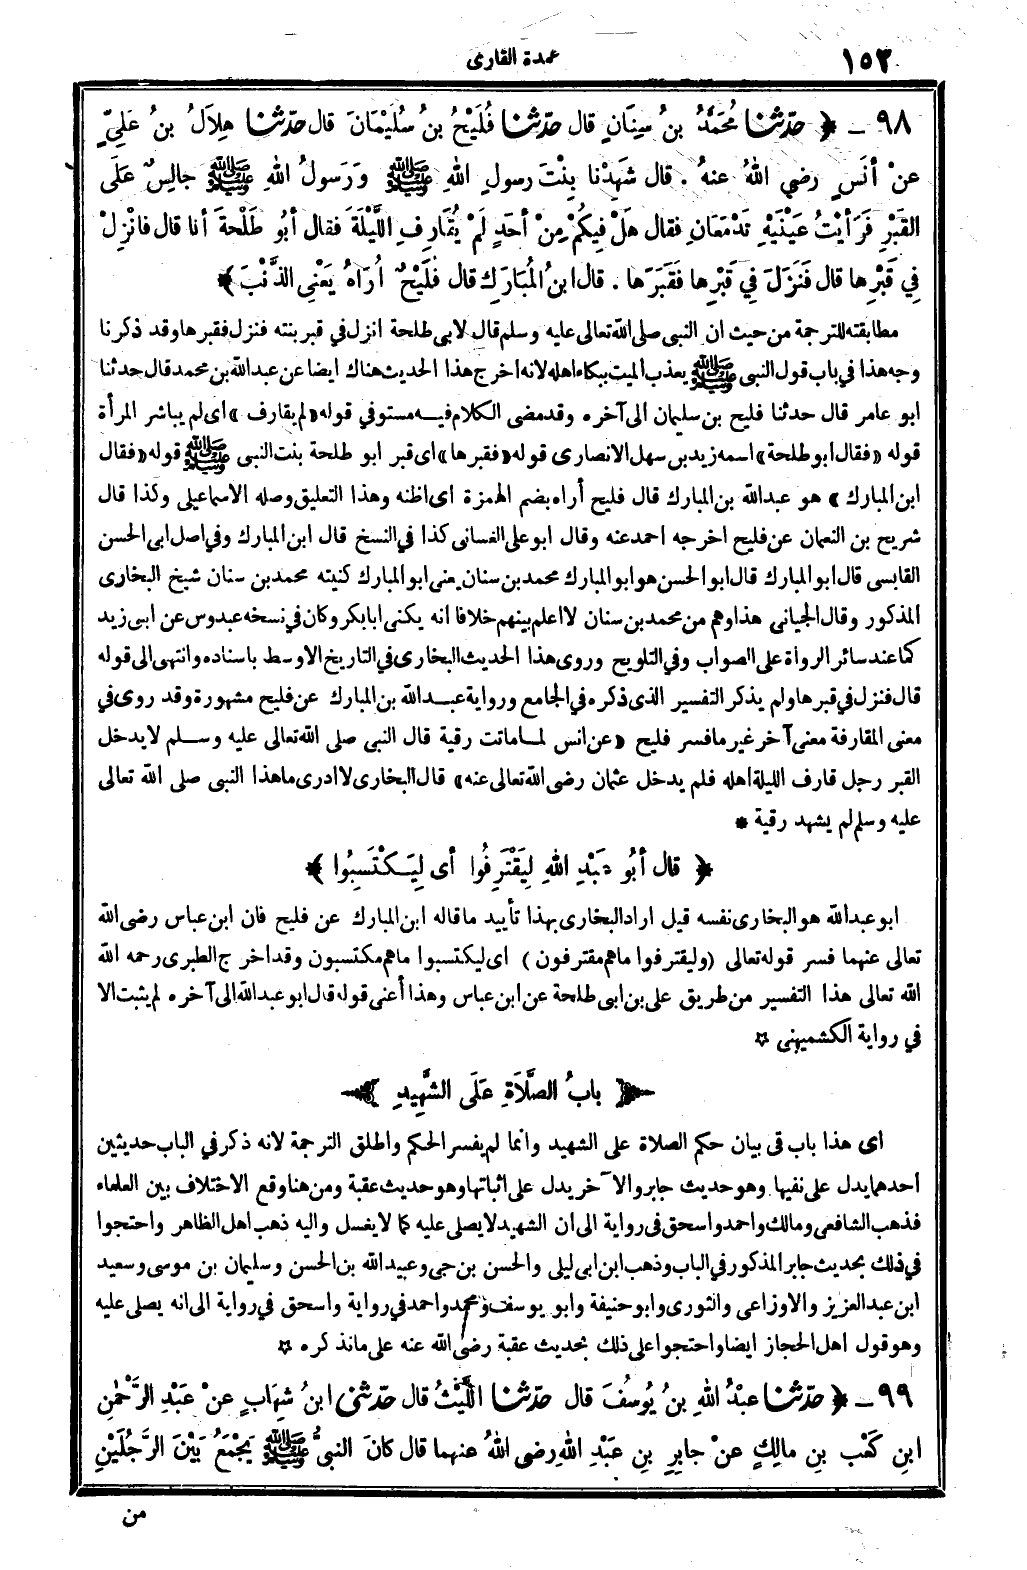 ١٥٢
عمدة القارى
٩٨ ـ ﴿ حدّثنا مُحَمَّدُ بنُ سِنَانٍ قال حدّثنا فُلَيْحُ بنُ سُلَيْمَانَ قال حدّثنا هِلاَلُ بنُ عَلِيٍّ
عنْ أنَسٍ رضي اللهُ عنهُ . قال شَهِدْنا بِنْتَ رسولِ اللهِ ﷺ وَرَسولُ اللهِ ﷺ جالِسٌ عَلَى
القَبْرِ فَرَأيْتُ عَيْنَيْهِ تَدْمَعَانِ فقال هَلْ فِيكُمْ مِنْ أحَدٍ لَمْ يُقَارِفِ اللَّيْلَةَ فقال أبُو طَلْحةَ أنا قال فانْزِلْ
فِي قَبْرِها قال فَنَزَلَ فِي قَبْرِها فَقَبَرَها . قال ابنُ المُبَارَكِ قال فُلَيْحٌ أُرَاهُ يَعْنِى الذَّنْبَ ﴾
مطابقته للترجمة من حيث ان النبى صلى الله تعالى عليه وسلم قال لابى طلحة انزل في قبر بنته فنزل فقبرها وقد ذكرنا
وجه هذا في باب قول النبى ﷺ يعذب الميت ببكاء اهله لانه اخرج هذا الحديث هناك ايضا عن عبدالله بن محمد قال حدثنا
ابو عامر قال حدثنا فليح بن سليمان الى آخره وقد مضى الكلام فيه مستوفي قوله «لم يقارف» اى لم يباشر المرأة
قوله «فقال ابو طلحة» اسمه زيد بن سهل الانصارى قوله «فقبرها» اى قبر ابو طلحة بنت النبى ﷺ قوله «فقال
ابن المبارك» هو عبدالله بن المبارك قال فليح أراه بضم الهمزة اى اظنه وهذا التعليق وصله الاسماعيلى وكذا قال
شريح بن النعمان عن فليح اخرجه احمد عنه وقال ابو على الغسانى كذا في النسخ قال ابن المبارك وفي اصل ابى الحسن
القابسى قال ابو المبارك قال ابو الحسن هو ابو المبارك محمد بن سنان يعنى ابو المبارك كنيته محمد بن سنان شيخ البخارى
المذكور وقال الجيانى هذا وهم من محمد بن سنان لا اعلم بينهم خلافا انه يكنى ابا بكر وكان في نسخه عبدوس عن ابى زيد
كما عند سائر الرواة على الصواب وفي التلويح وروى هذا الحديث البخارى في التاريخ الاوسط باسناده وانتهى الى قوله
قال فنزل في قبرها ولم يذكر التفسير الذى ذكره في الجامع ورواية عبد الله بن المبارك عن فليح مشهورة وقد روى في
معنى المقارفة معنى آخر غير ما فسر فليح «عن انس لما ماتت رقية قال النبى صلى الله تعالى عليه وسلم لا يدخل
القبر رجل قارف الليلة اهله فلم يدخل عثمان رضى الله تعالى عنه» قال البخارى لا ادرى ما هذا النبى صلى الله تعالى
عليه وسلم لم يشهد رقية *
﴿ قال أبُو عَبْدِ اللهِ لِيَقْتَرِفُوا أى لِيَكْتَسِبُوا ﴾
ابو عبدالله هو البخارى نفسه قيل اراد البخارى بهذا تأييد ما قاله ابن المبارك عن فليح فان ابن عباس رضى الله
تعالى عنهما فسر قوله تعالى (وليقترفوا ما هم مقترفون) اى ليكتسبوا ما هم مكتسبون وقد اخرج الطبرى رحمه الله
الله تعالى هذا التفسير من طريق على بن ابى طلحة عن ابن عباس وهذا أعنى قوله قال ابو عبدالله الى آخره لم يثبت الا
في رواية الكشميهنى ☆
﴿ بابُ الصَّلاَةِ عَلَى الشَّهِيدِ ﴾
اى هذا باب في بيان حكم الصلاة على الشهيد وانما لم يفسر الحكم واطلق الترجمة لانه ذكر في الباب حديثين
أحدهما يدل على نفيها وهو حديث جابر والآخر يدل على اثباتها وهو حديث عقبة ومن هنا وقع الاختلاف بين العلماء
فذهب الشافعى ومالك واحمد واسحق فى رواية الى ان الشهيد لا يصلى عليه كما لا يغسل واليه ذهب اهل الظاهر واحتجوا
في ذلك بحديث جابر المذكور في الباب وذهب ابن ابى ليلى والحسن بن حى وعبيد الله بن الحسن وسليمان بن موسى وسعيد
ابن عبد العزيز والاوزاعى والثورى وابو حنيفة وابو يوسف ومحمد واحمد في رواية واسحق في رواية الى انه يصلى عليه
وهو قول اهل الحجاز ايضا واحتجوا على ذلك بحديث عقبة رضى الله عنه على مانذكره ☆
٩٩ ـ ﴿ حدّثنا عبْدُ اللهِ بنُ يُوسُفَ قال حدّثنا اللَّيْثُ قال حدّثنى ابنُ شِهَابٍ عنْ عَبْدِ الرَّحْمٰنِ
ابنِ كَعْبِ بنِ مالِكٍ عنْ جابِرِ بنِ عَبْدِ اللهِ رضى اللهُ عنهما قال كانَ النبىُّ ﷺ يَجْمَعُ بَيْنَ الرَّجُلَيْنِ
من